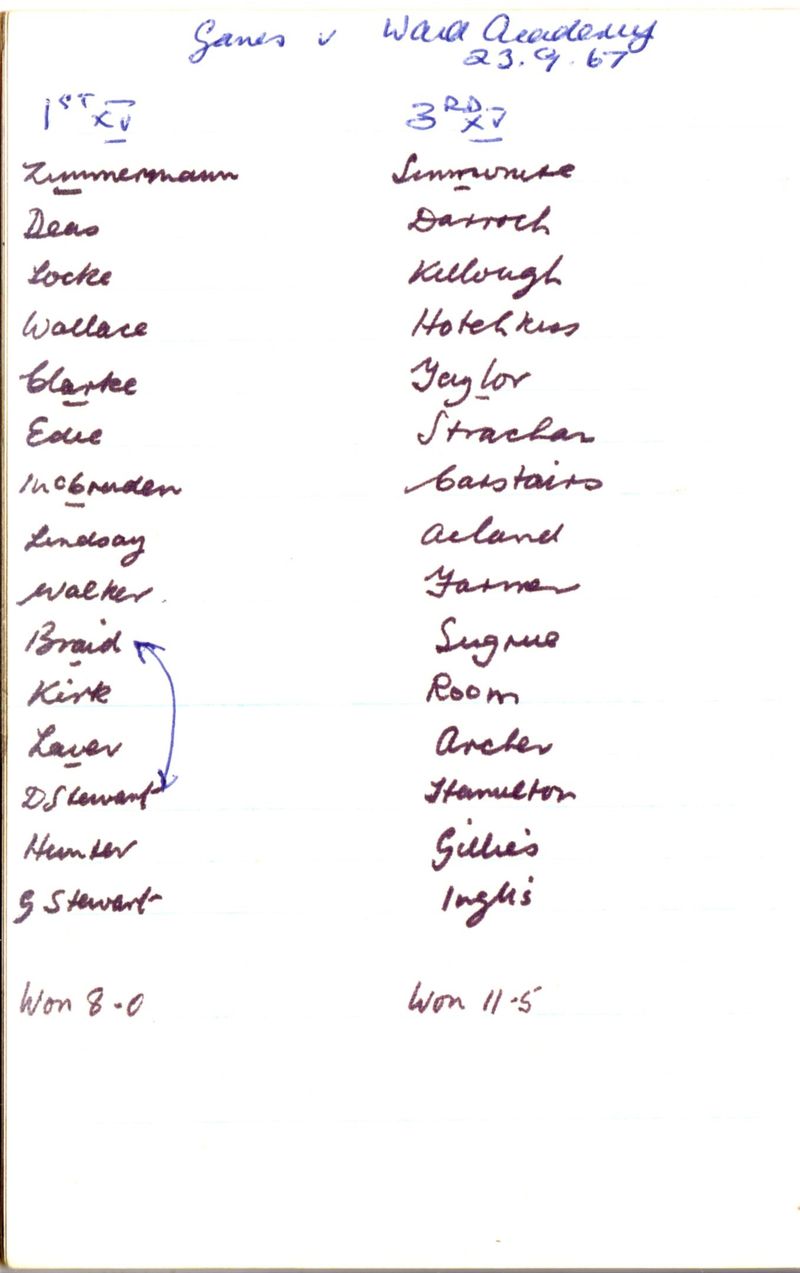 Games v Waid Academy
23.9.67
1ST XV
Zimmermann
Deas
Locke
Wallace
Clarke
Edie
McCruden
Lindsay
Walker
Braid
Kirk
Laver
D Stewart
Hunter
G Stewart
Won 8-0
3RD XV
Darroch
Killough
Hotchkiss
Taylor
Strachan
Carstairs
Acland
Farmer
Sugrue
Room
Archer
Hamilton
Gillies
Inglis
Won 11-5